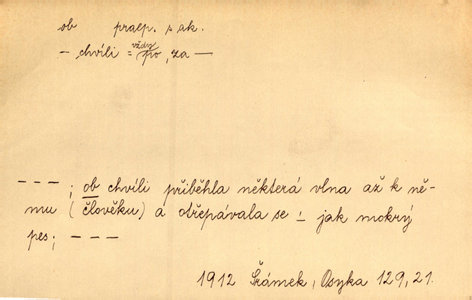 ob praep. s ak.
– chvíli = vždy po, za –
– – – ; ob chvíli přiběhla některá vlna až k ně-
mu (člověku) a otřepávala se – jak mokrý
pes; – – –
1912 Šrámek, Osyka 129,21.